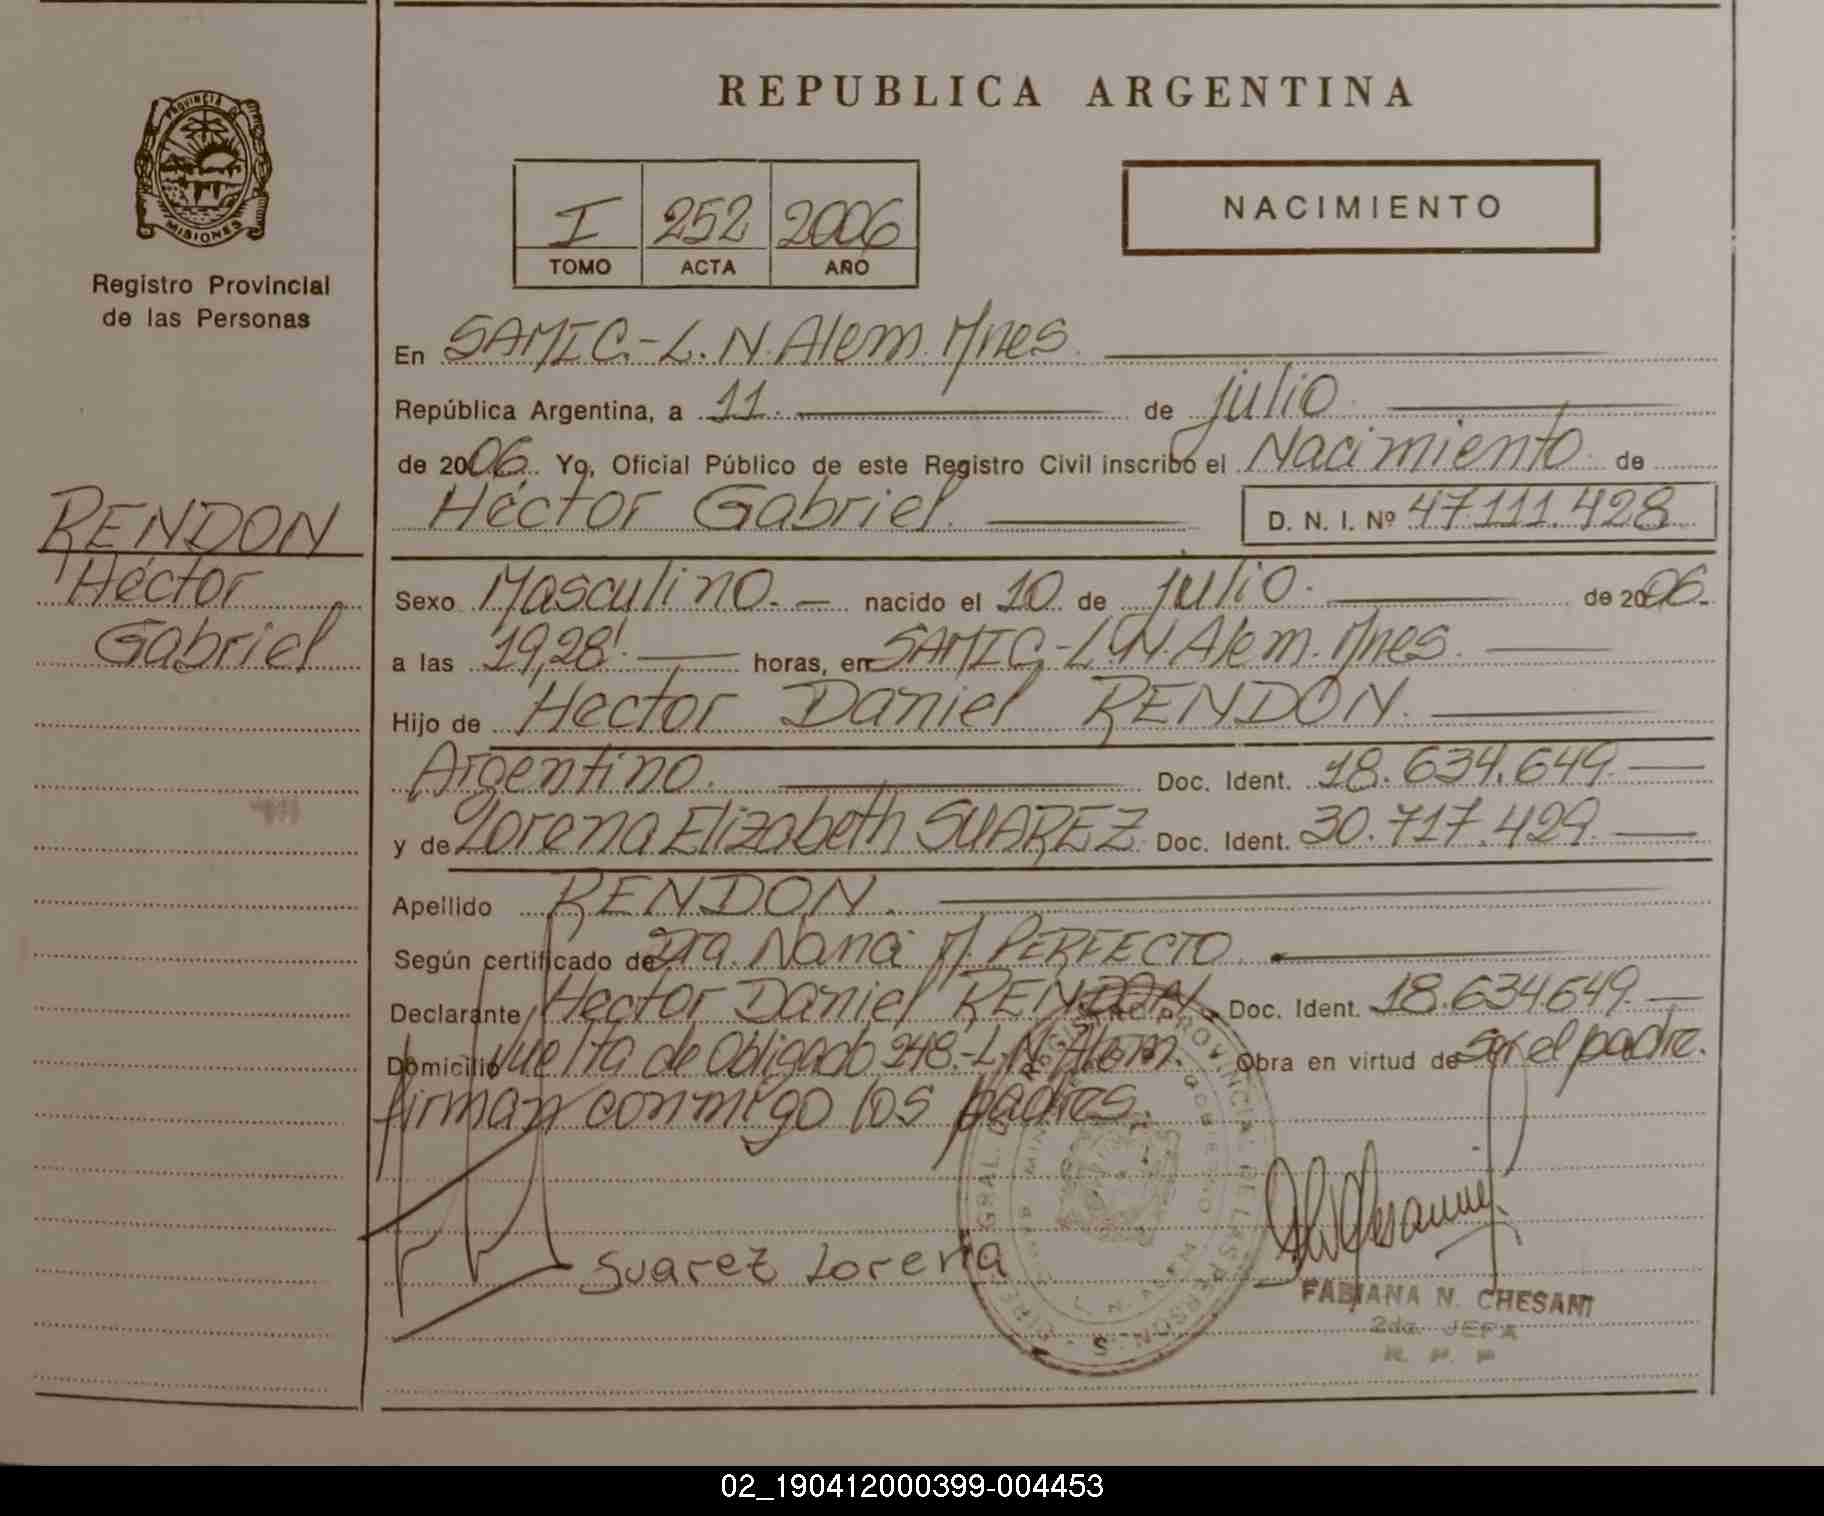 REPUBLICA ARGENTINA
PROVINCIA DE
MISIONES
Registro Provincial
de las Personas
I 252 2006
TOMO ACTA AÑO
NACIMIENTO
En SAMIC.-L.N.Alem.Mnes.
República Argentina, a 11. de julio
de 2006. Yo, Oficial Público de este Registro Civil inscribo el Nacimiento de
Héctor Gabriel. D. N. I. Nº 47.111.428
RENDON
Héctor
Gabriel
Sexo Masculino. nacido el 10 de julio. de 2006.
a las 19,28' horas, en SAMIC.-L.N.Alem.Mnes.
Hijo de Hector Daniel RENDON.
Argentino. Doc. Ident. 18.634.649.
y de Lorena Elizabeth SUAREZ Doc. Ident. 30.717.429.
Apellido RENDON.
Según certificado de Dra. Nanci M. PERFECTO.
Declarante Hector Daniel RENDON Doc. Ident. 18.634.649.
Domicilio Vuelta de Obligado 248.-L.N.Alem. Obra en virtud de ser el padre.
firman conmigo los padres.
Suarez Lorena
FABIANA N. CHESANI
2da. JEFA
R. P. P
02_190412000399-004453